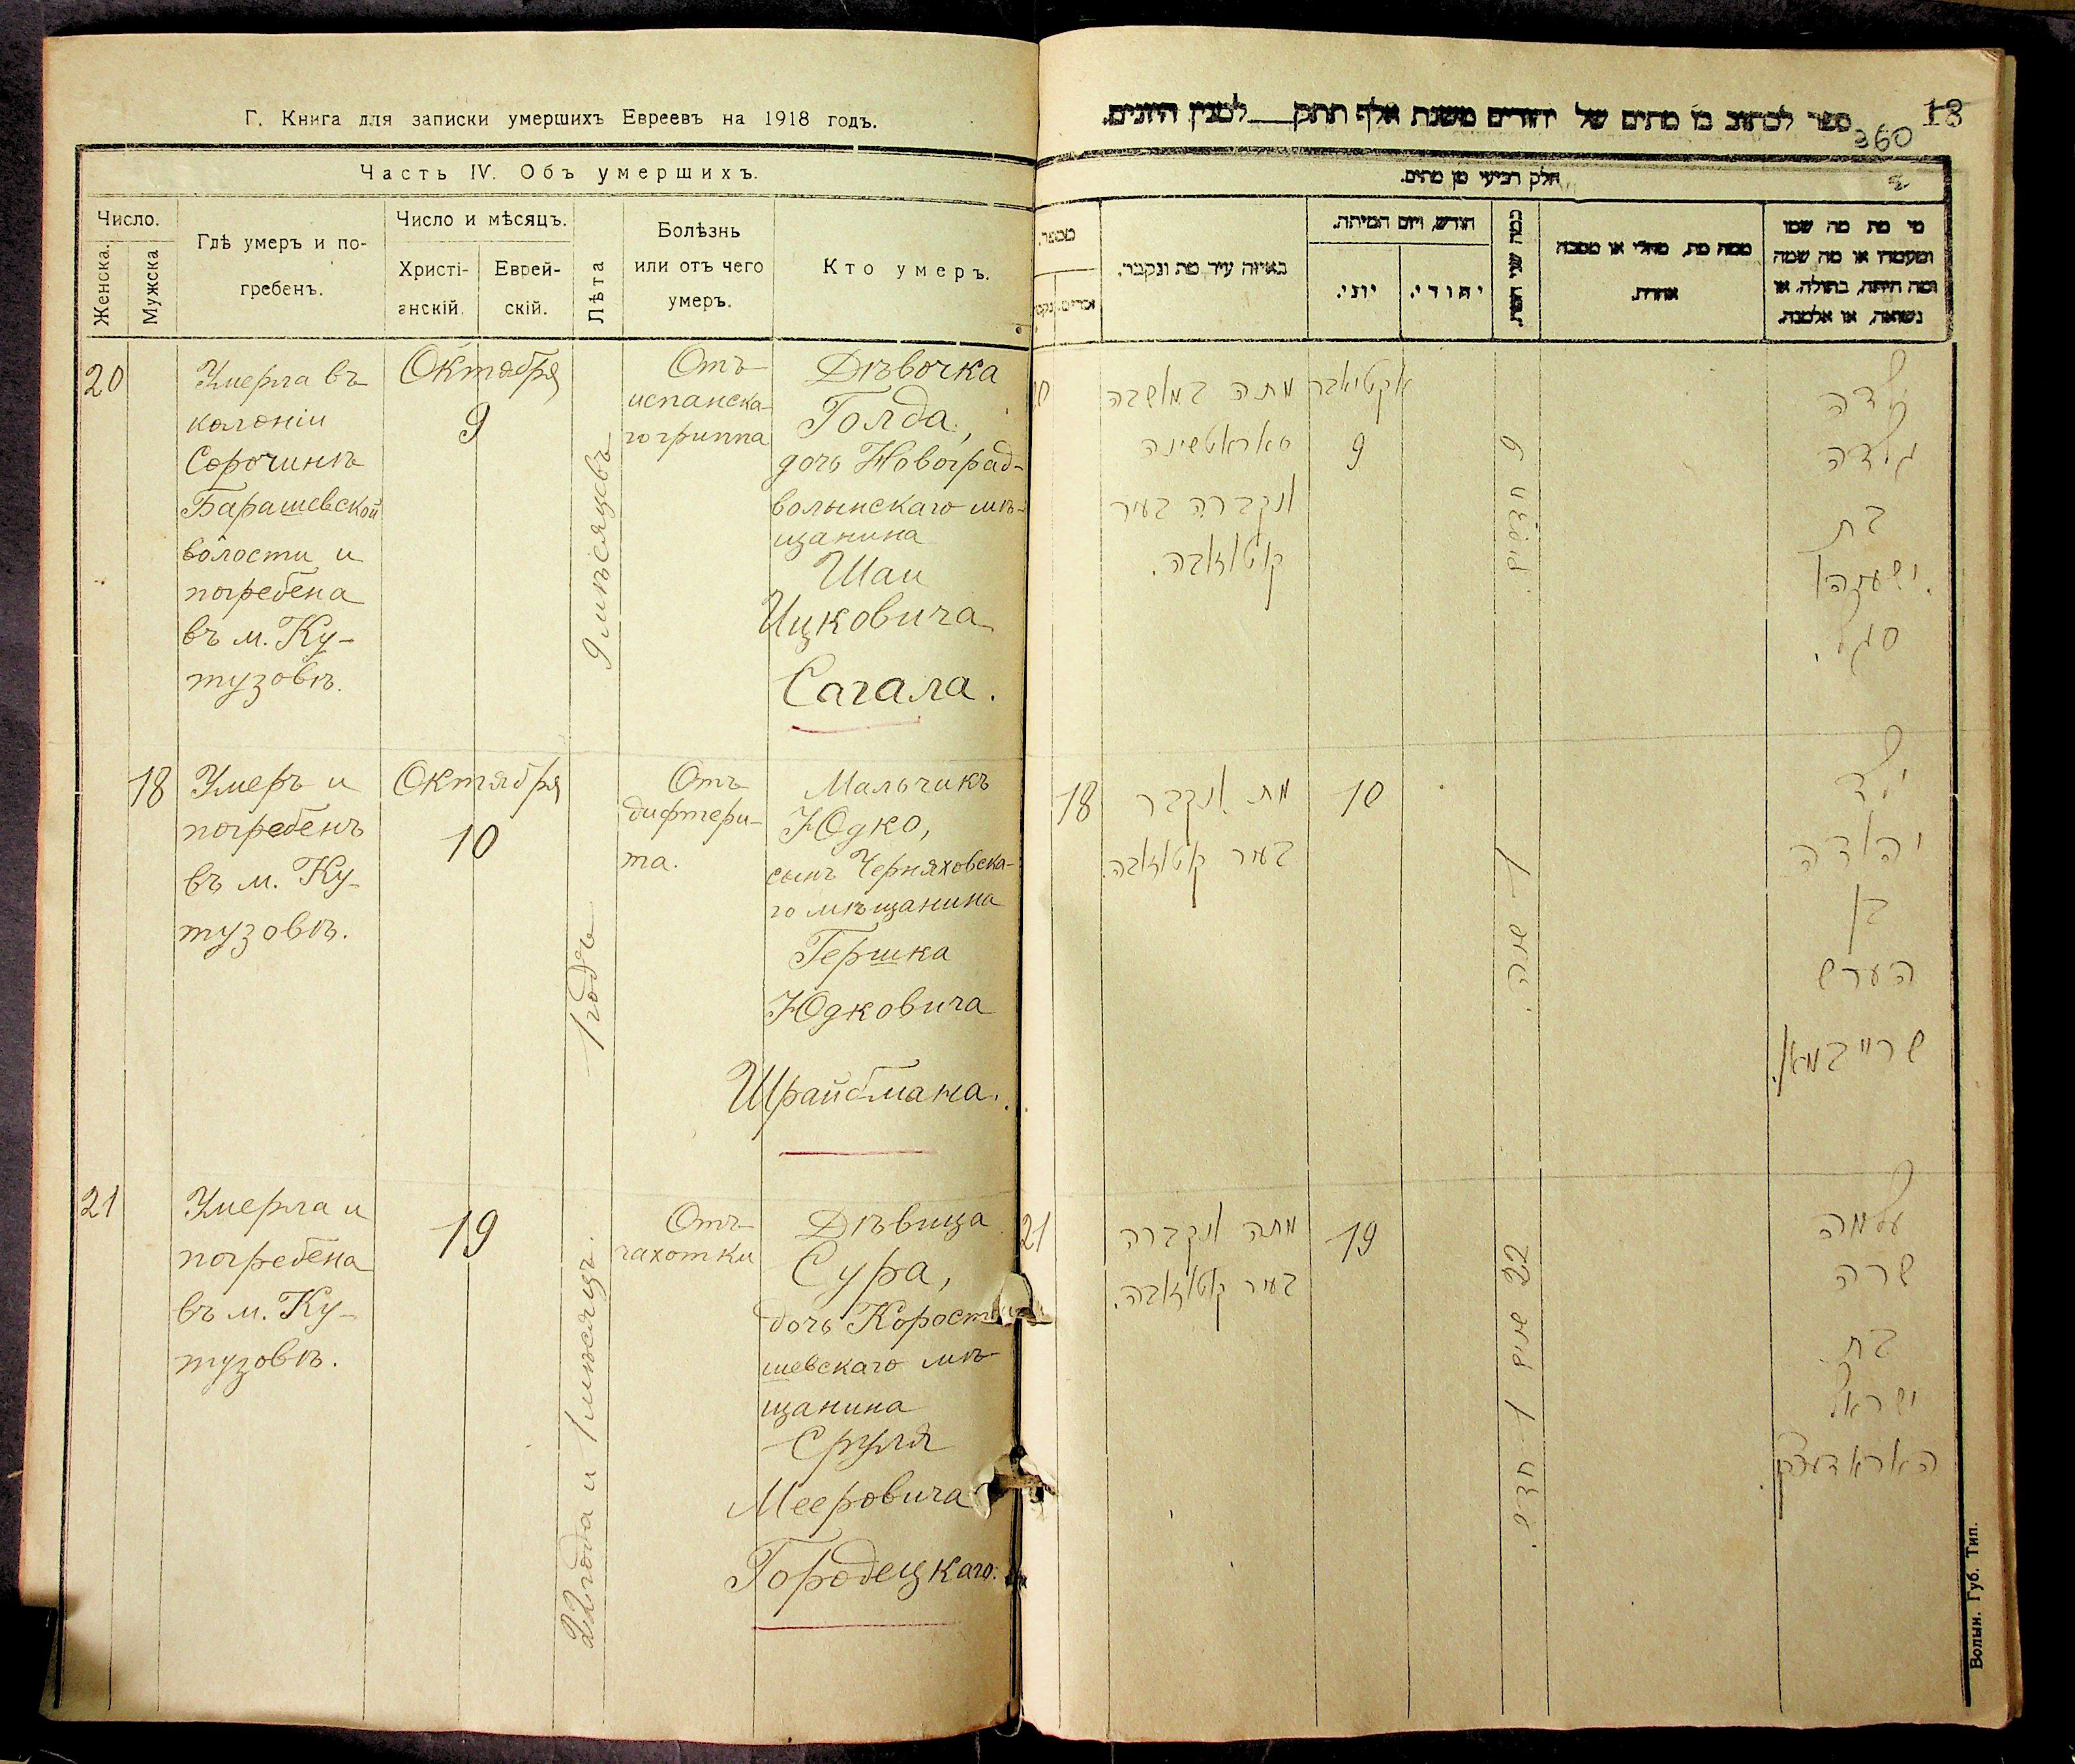 Г. Книга для записки умершихъ Евреевъ на 1918 годъ.
Часть IV. Объ умершихъ.
Число.
Женска.
Мужска
Гдѣ умеръ и по-
гребенъ.
Число и мѣсяцъ.
Христі-
анскій.
Еврей-
скій.
Лѣта
Болѣзнь
или отъ чего
умеръ.
Кто умеръ.
20
Умерла въ
колоніи
Сорочинѣ
Барашевской
волости и
погребена
въ м. Ку-
тузовѣ.
Октября
9
9 мѣсяцевъ
Отъ
испанска-
го гриппа
Дѣвочка
Голда,
дочь Новоград-
волынскаго мѣ-
щанина
Шаи
Ицковича
Сагала.
18
Умеръ и
погребенъ
въ м. Ку-
тузовѣ.
Октября
10
1 годъ
Отъ
дифтери-
та.
Мальчикъ
Юдко,
сынъ Черняховска-
го мѣщанина
Гершка
Юдковича
Шрайбмана.
21
Умерла и
погребена
въ м. Ку-
тузовѣ.
19
22 года и 1 мѣсяцъ.
Отъ
чахотки
Дѣвица
Сура,
дочь Корост
шевскаго мѣ-
щанина
Сруля
Мееровича
Городецкаго.
18
360
ספר לכתוב בו מתים של יהודים משנת אלף תתק__למנין היונים.
חלק רביעי מן מתים.
מספר.
באיזה עיר מת ונקבר.
חודש, ויום המיתה.
יוני.
יהודי.
כמה שני חייו.
ממה מת, מחלי או מסבה
אחרת.
מי מת מה שמו
ומעמדו או מה שמה
ומה היתה, בתולה, או
נשואה, או אלמנה.
מתה במושבה
סאראטשינה
ונקברה בעיר
קוטוזובה.
אקטיאבר
9
9 חדשים
ילדה
גולדה
בת
ישעיהו
סגל.
18
מת ונקבר
בעיר קוטוזובה.
10
1 שנה.
ילד
יהודה
בן
הערש
שרייבמאן.
21
מתה ונקברה
בעיר קוטוזובה.
19
22 שנים 1 חדש.
עלמה
שרה
בת
ישראל
האראדעצקי
Волын. Губ. Тип.